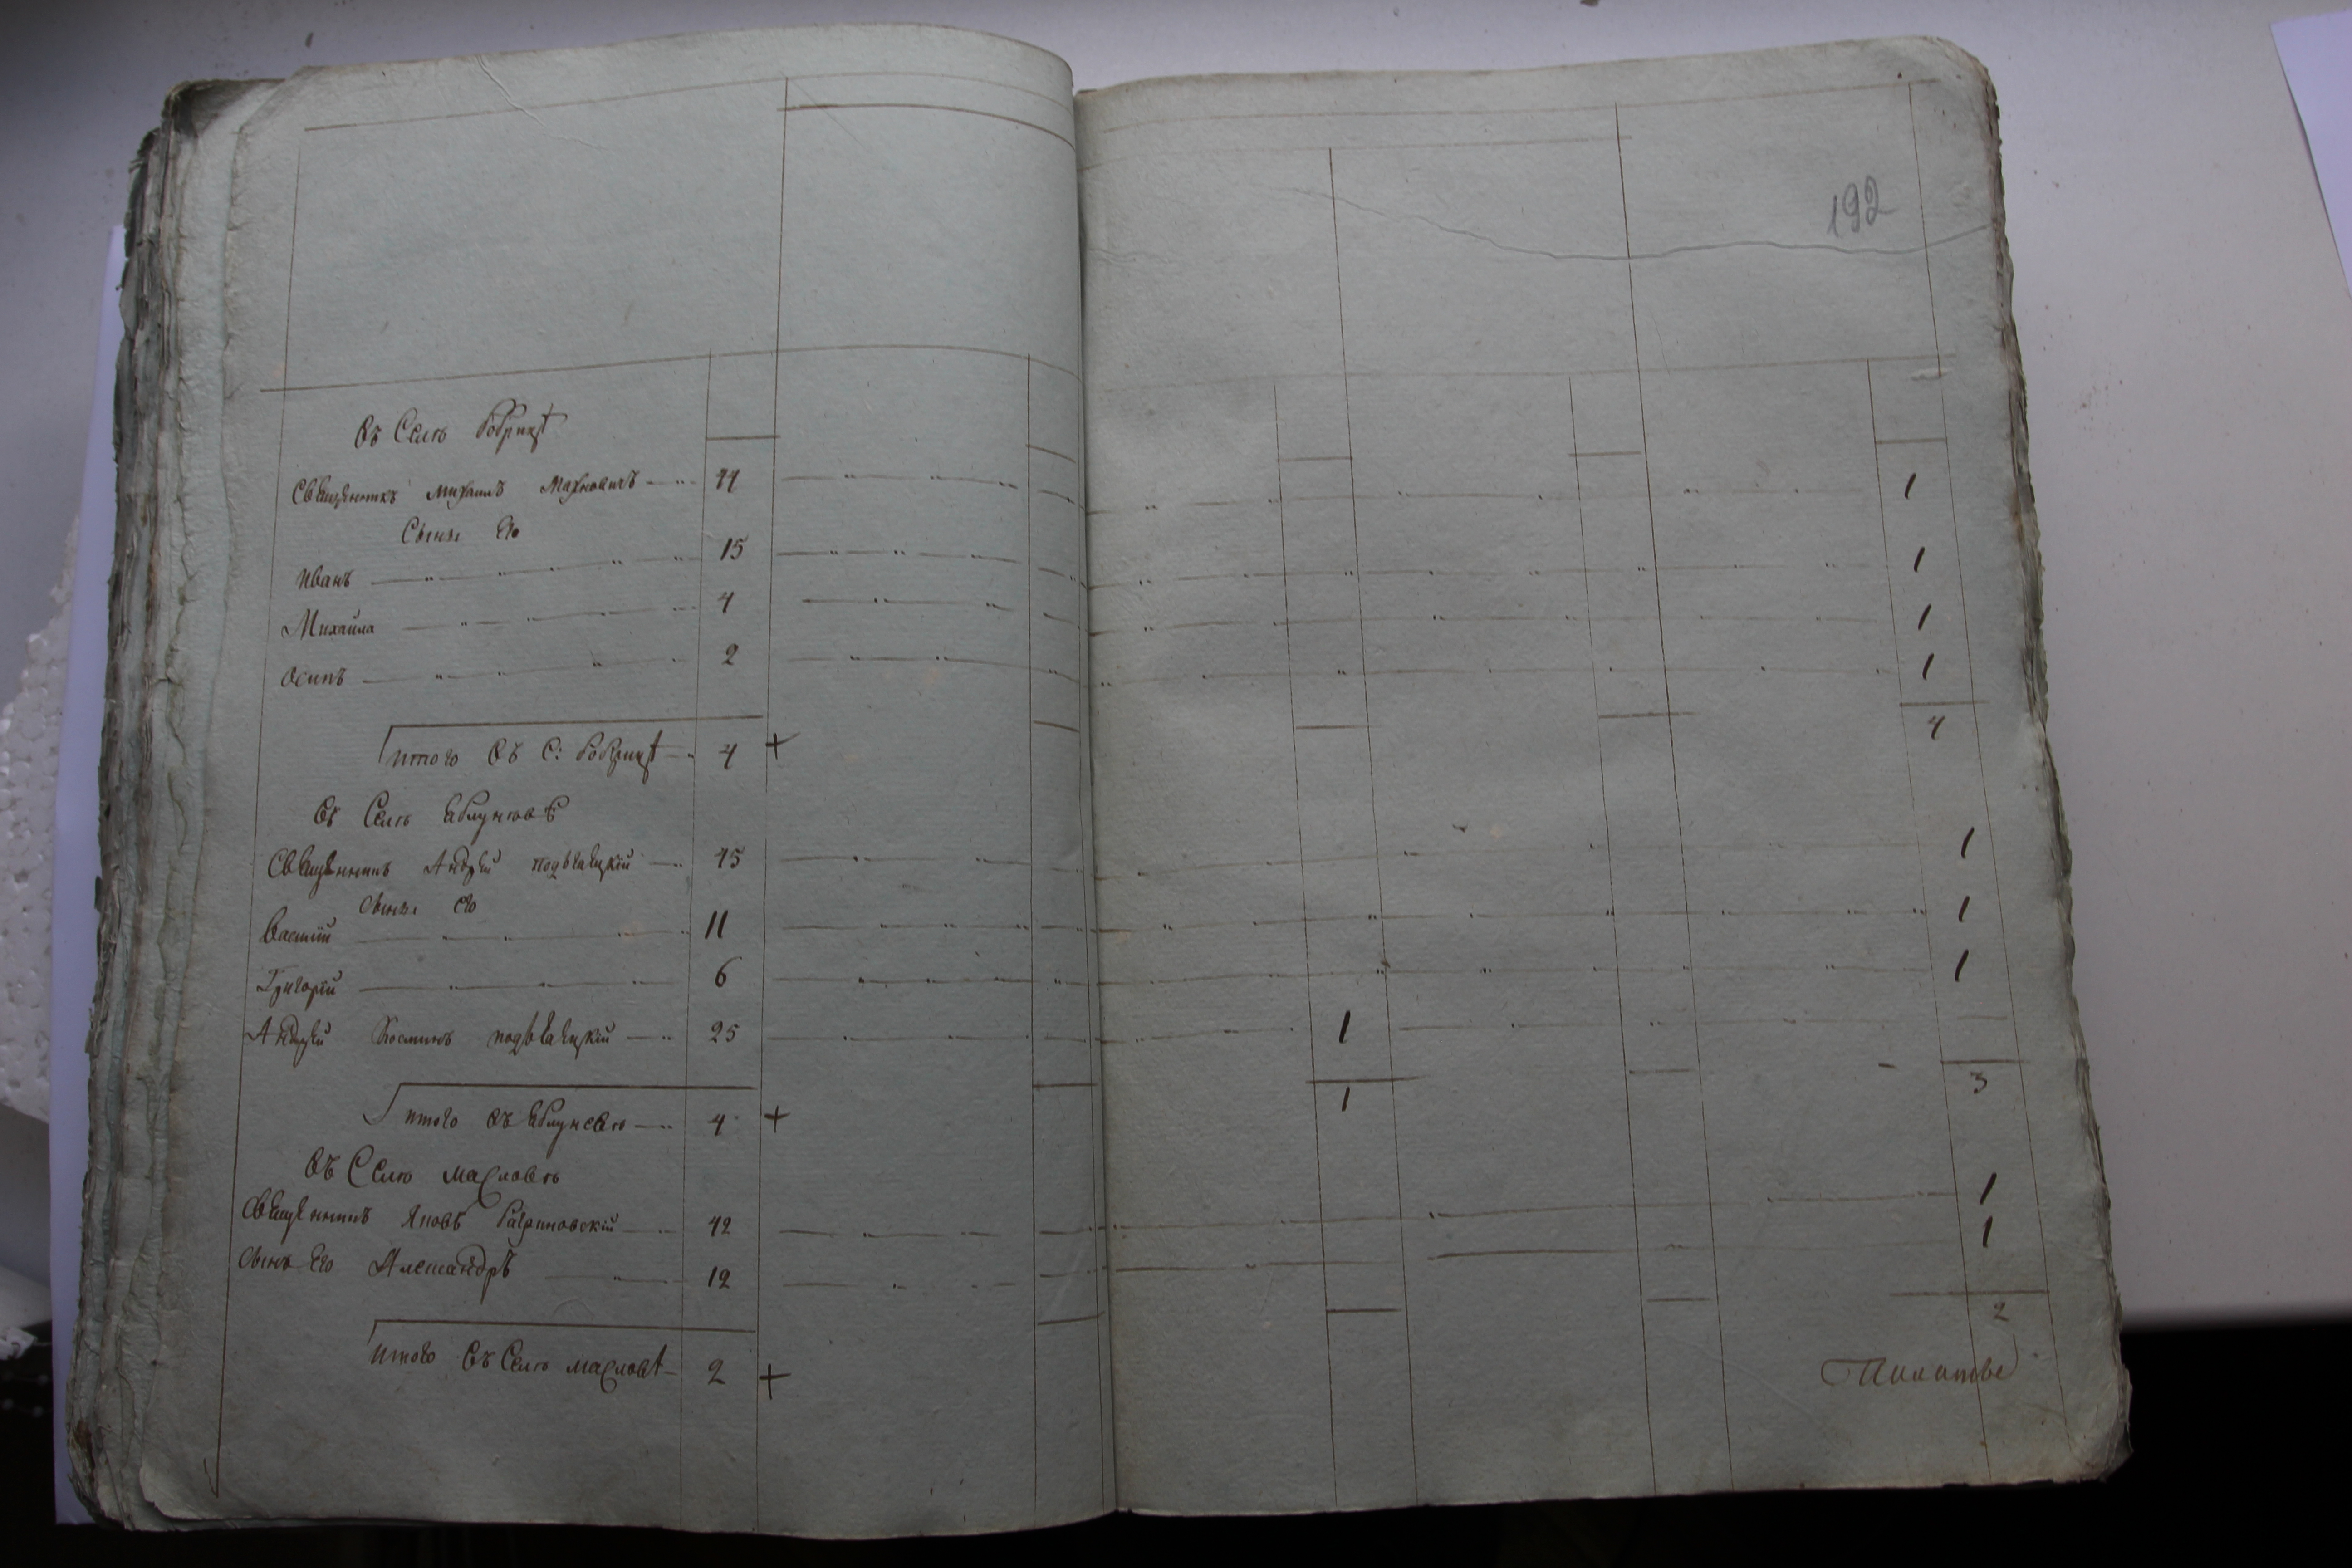 192
Въ Селѣ Бобрицѣ
Священникъ Михаилъ Махновичъ 44 1
Сыны его
Иванъ 15 1
Михайла 4 1
Осипъ 2 1
Итого въ С: Бобрицѣ 4 + 4
Въ Селѣ Яблуновѣ
Священникъ Андрей 45 1
Сыны его
Василій 11 1
Григорій 6 1
Андрей 25 1
Итого въ Яблуновѣ 4 + 1 3
Въ Селѣ Масловѣ
Священникъ Яковъ 42 1
Сынъ его Александръ 12 1
2
Итого въ Селѣ Масловѣ 2 +